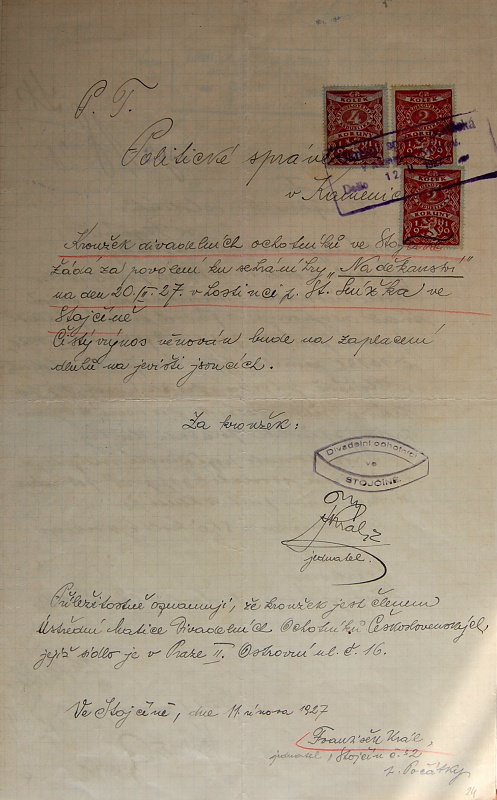 P. T.
Politické správě
v Kamenici
Kroužek divadelních ochotníků ve Stojčíně
žádá za povolení ku sehrání hry „Na děkanství"
na den 20/II. 27. v hostinci p. St. ve
Stojčíně
Čistý výnos věnován bude na zaplacení
dluhů na jevišti jsoucích.
Za kroužek:
Divadelní ochotníci
ve
STOJČÍNĚ.
Král
jednatel.
Příležitostně oznamuji, že kroužek jest členem
Ústřední Matice Divadelních Ochotníků Československých,
jejíž sídlo je v Praze II. Ostrovní ul. č. 16.
Ve Stojčíně, dne 11. února 1927
František Král,
jednatel, Stojčín č. 32
p. Počátky
ČR
KOLEK
4
KORUNY
ČR
KOLEK
2
KORUNY
ČR
KOLEK
2
KORUNY
Došlo 12.